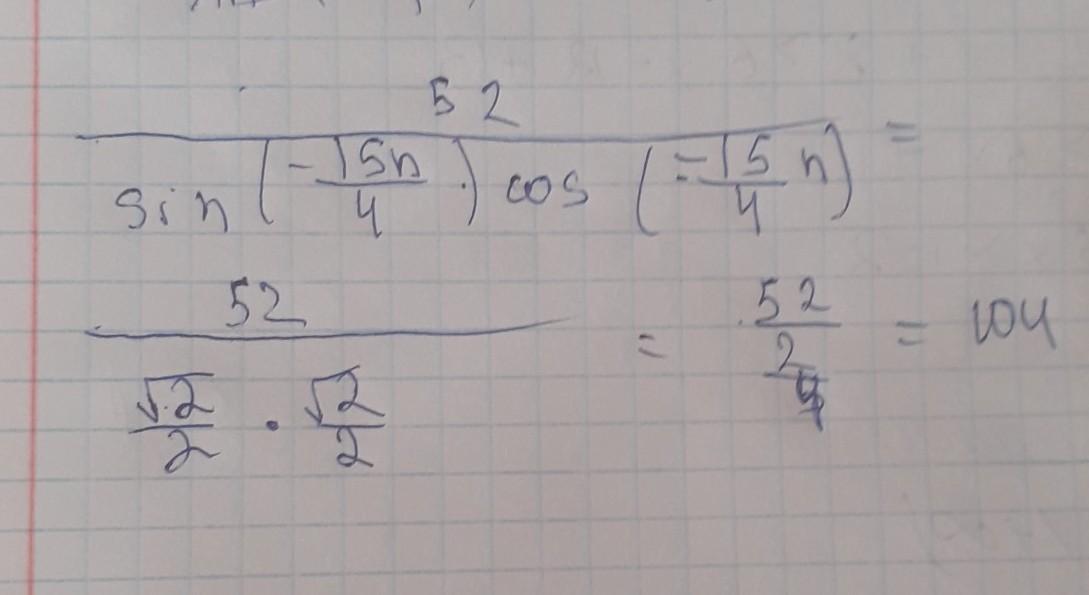 52
sin (- 15π/4 ·) cos (= 15/4 π) =
52 / (√2/2 · √2/2) = 52 / (2/4) = 104